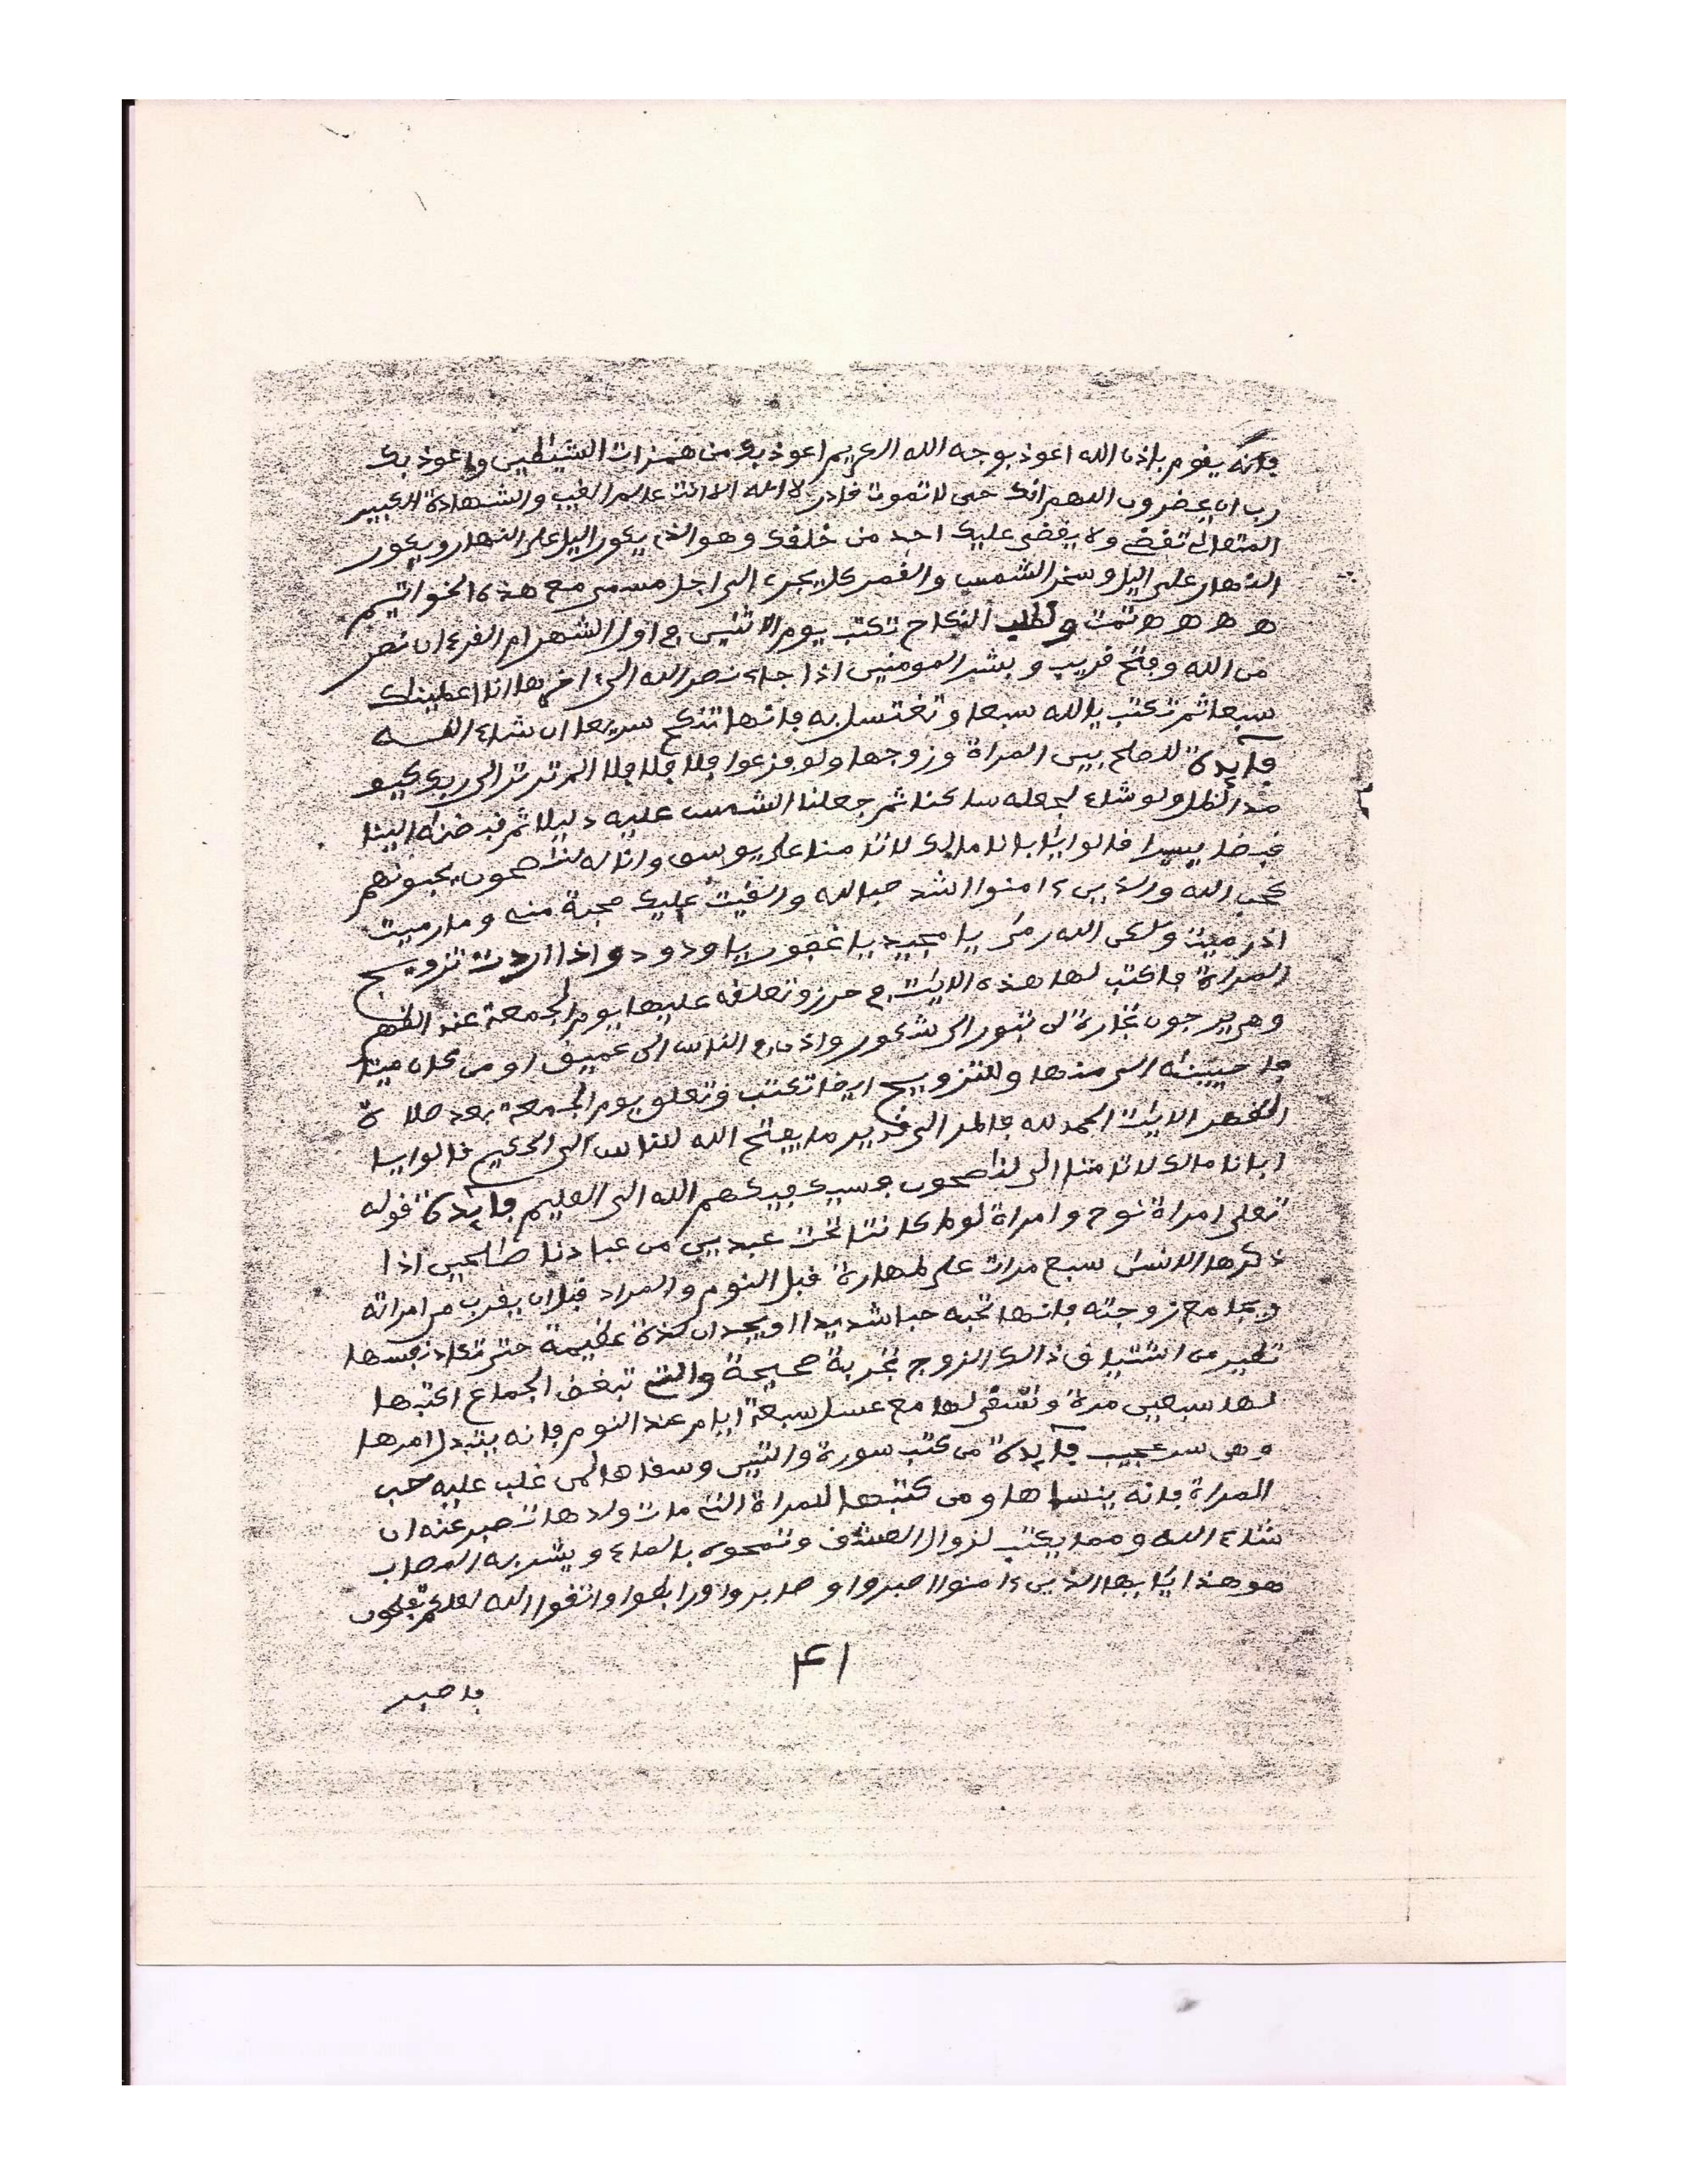 فإنه يقوم بإذن الله اعوذ بوجه الله الكريم اعوذ بك من همزات الشيطين واعوذ بك
رب ان يحضرون اللهم انك حى لا تموت قادر لا اله الا انت عالم الغيب والشهادة الكبير
المتعالى تقضى ولا يقضى عليك احد من خلقك وهو الذى يكور اليل على النهار ويكور
النهار على اليل وسخر الشمس والقمر كل يجرى الى اجل مسمى مع هذه الخواتيم
ه ه ه ه تمت ولطلب النكاح تكتب يوم الاثنين فى اول الشهر ام القرءان نصر
من الله وفتح قريب وبشر المومنين اذا جاء نصر الله الى اخرها انا اعطيناك
سبعا ثم تكتب يا الله سبعا وتغتسل به فإنها تنكح سريعا ان شاء الله
فايدة للصلح بين المراة وزوجها ولو فزعوا فلا فلا فلا الم تر الى ربك كيف
مد الظل ولو شاء لجعله ساكنا ثم جعلنا الشمس عليه دليلا ثم قبضنه الينا
قبضا يسيرا قالوا يابانا مالك لا تامنا على يوسف وانا له لنصحون يحبونهم
كحب الله والذين ءامنوا اشد حبا لله والقيت عليك محبة منه وما رميت
اذ رميت ولكن الله رمى يا مجيد يا غفور يا ودود واذا اردت تزويج
المراة فاكتب لها هذه الايت فى حرز وتعلقه عليها يوم الجمعة عند الظهر
وهى يرجون تجارة لن تبور الى شكور واذن فى الناس الى عميق او من كان ميتا
فاحيينه الى منها وللتزويج ايضا تكتب وتعلق يوم الجمعة بعد صلاة
الظهر الايت الحمد لله فاطر الى قدير ما يفتح الله للناس الى الحكيم قالوا يا
ابانا مالك لا تامنا الى لنصحون فسيكفيكهم الله الى العليم فايدة قوله
تعلى امراة نوح وامراة لوط كانتا تحت عبدين من عبادنا صالحين اذا
ذكرها الانسن سبع مرات على طهارة قبل النوم والمراد قبل ان يقرب من امراته
ويجامع زوجته فإنها تحبه حبا شديدا ويجدان لذة عظيمة حتى تكاد نفسها
تطير من اشتياق ذالك الزوج تجربة صحيحة والتى تبغض الجماع اكتبها
لها سبعين مرة وتسقى لها مع عسل سبعة ايام عند النوم فإنه يتبدل امرها
وهى سر عجيب فايدة من كتب سورة والتين وسقاها لمن غلب عليه حب
المراة فإنه ينساها ومن كتبها للمراة التى مات ولدها تصبر عنه ان
شاء الله ومما يكتب لزوال العشق وتمحوه بالماء ويشربه المصاب
هو هذا يايها الذين ءامنوا اصبروا وصابروا ورابطوا واتقوا الله لعلكم تفلحون
٤١
فاصبر